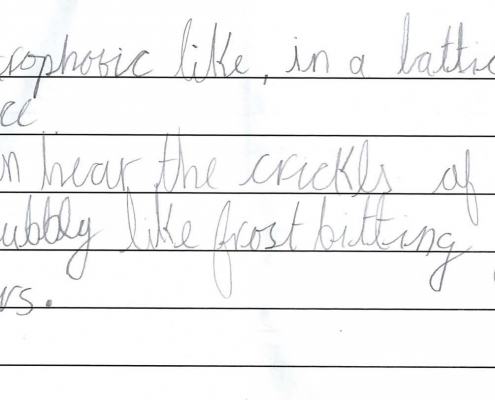 rophobic like, in a lattic
ce
n hear the crickls of
ubbly like frost bitting
rs.